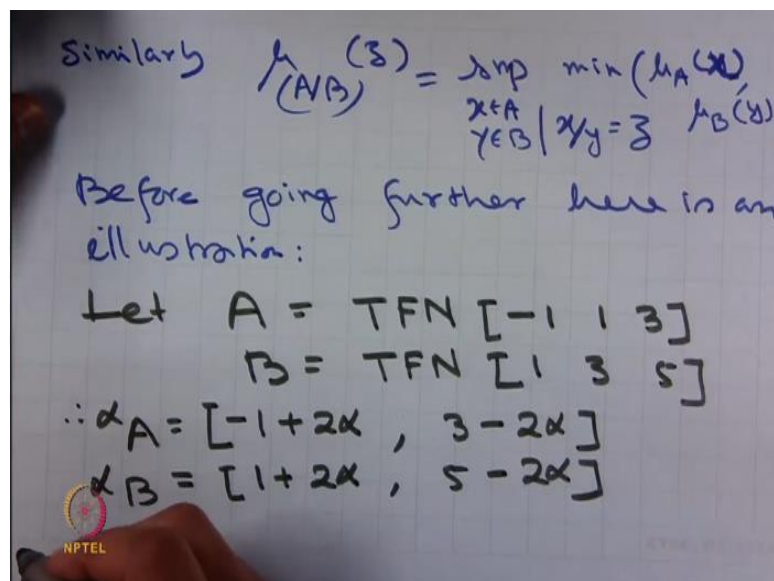 Similarly μ(A/B)(z) = sup min (μA(x),
x∈A
y∈B | x/y = z μB(y)
Before going further here is an
illustration:
Let A = TFN [-1 1 3]
B = TFN [1 3 5]
∴ αA = [-1 + 2α , 3 - 2α]
αB = [1 + 2α , 5 - 2α]
NPTEL